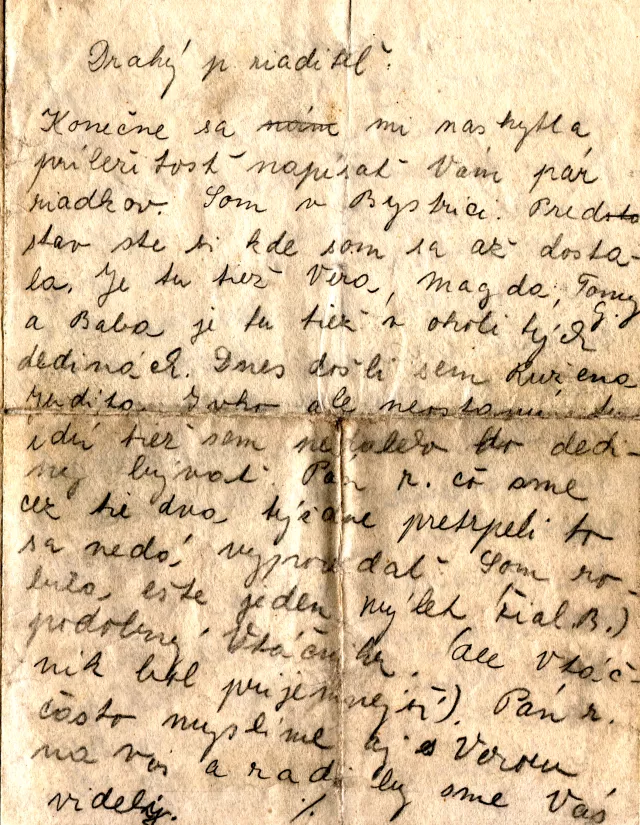 Drahý p. riaditeľ.
Konečne sa mi naskytla
príležitosť napísať Vám pár
riadkov. Som v Bystrici. Pred
stav ste si kde som sa až dosta-
la. Je tu tiež Vera, Magda, Tomy
a Baba je tu tiež v okolí tých
dedinách. Dnes došli sem Ružena
Judita, Ivko ale neostanú tu
idú tiež sem neďaleko do dedi-
ny bývať. Pán r. čo sme
cez tie dva týždne pretrpeli to
sa nedá vyprovedať. Som ro-
bila, ešte jeden výlet (tial B.)
podobný Vtáčniku. (ale Vtáč-
nik bol príjemnejší). Pán r.
často myslíme aj s Verou
na vás a radi by sme Vás
videly. ./.